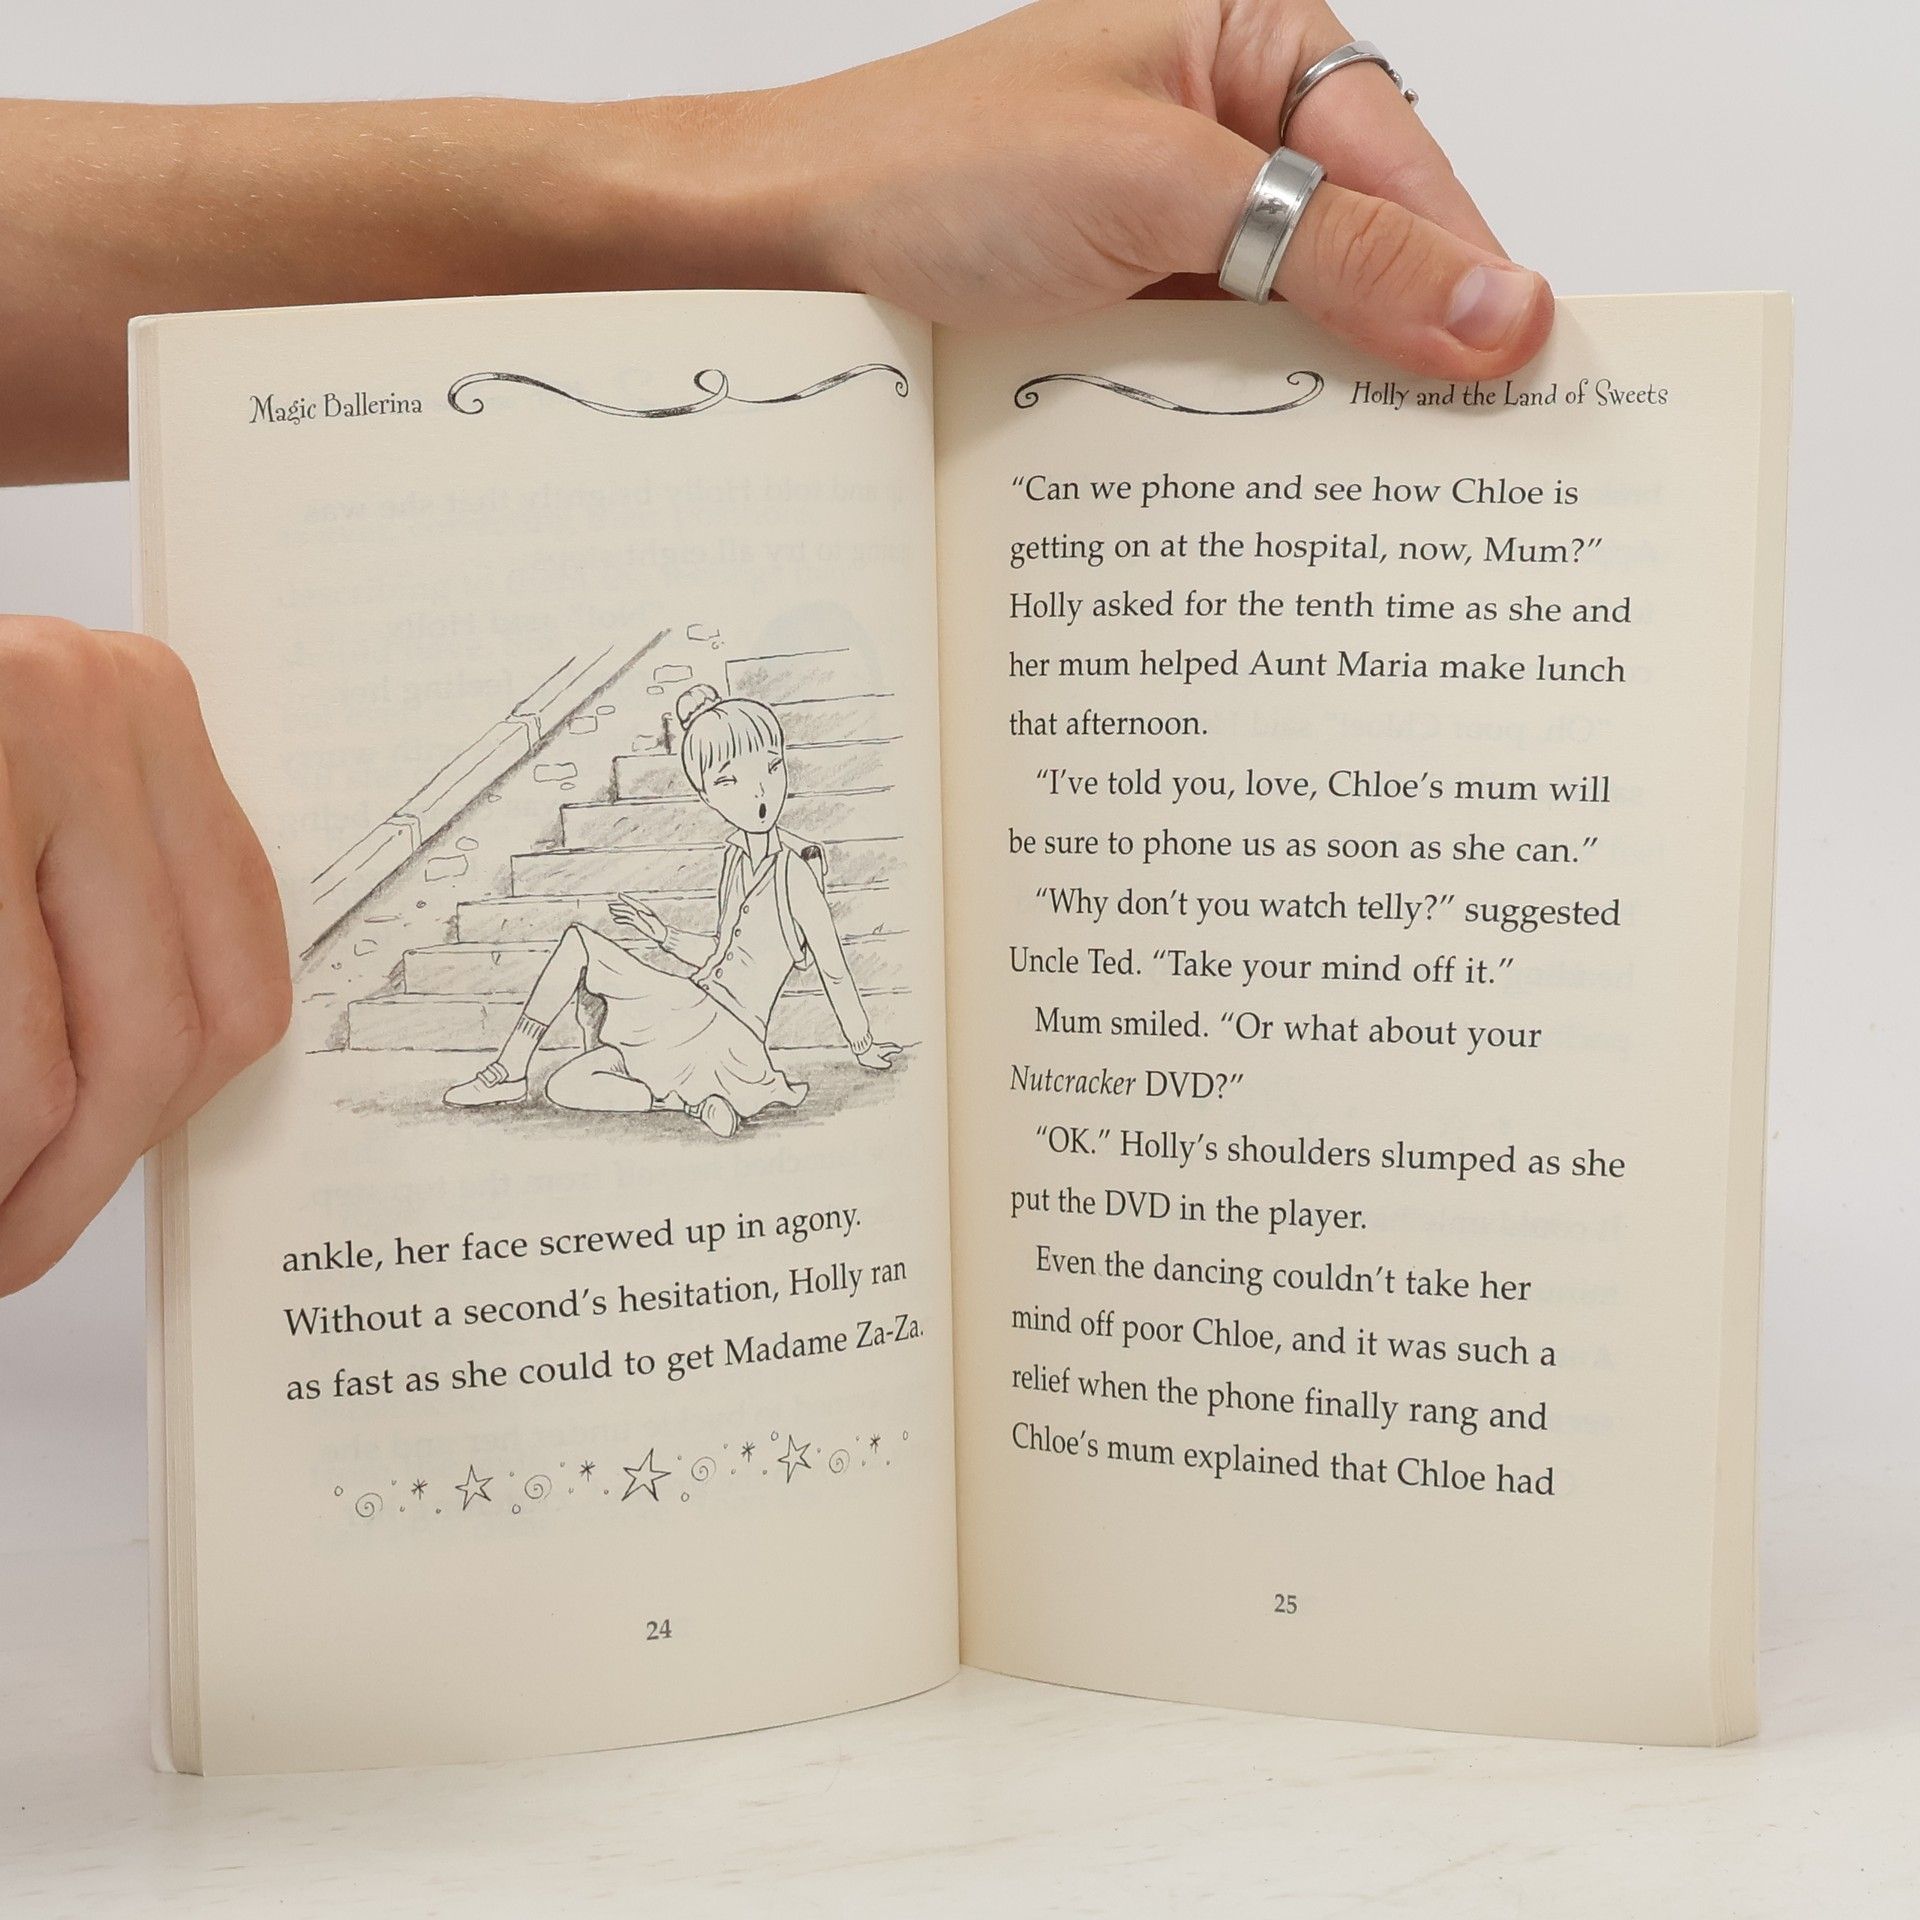 Magic Ballerina
ankle, her face screwed up in agony.
Without a second's hesitation, Holly ran
as fast as she could to get Madame Za-Za.
24
Holly and the Land of Sweets
“Can we phone and see how Chloe is
getting on at the hospital, now, Mum?”
Holly asked for the tenth time as she and
her mum helped Aunt Maria make lunch
that afternoon.
“I’ve told you, love, Chloe’s mum will
be sure to phone us as soon as she can.”
“Why don’t you watch telly?” suggested
Uncle Ted. “Take your mind off it.”
Mum smiled. “Or what about your
Nutcracker DVD?”
“OK.” Holly’s shoulders slumped as she
put the DVD in the player.
Even the dancing couldn’t take her
mind off poor Chloe, and it was such a
relief when the phone finally rang and
Chloe’s mum explained that Chloe had
25